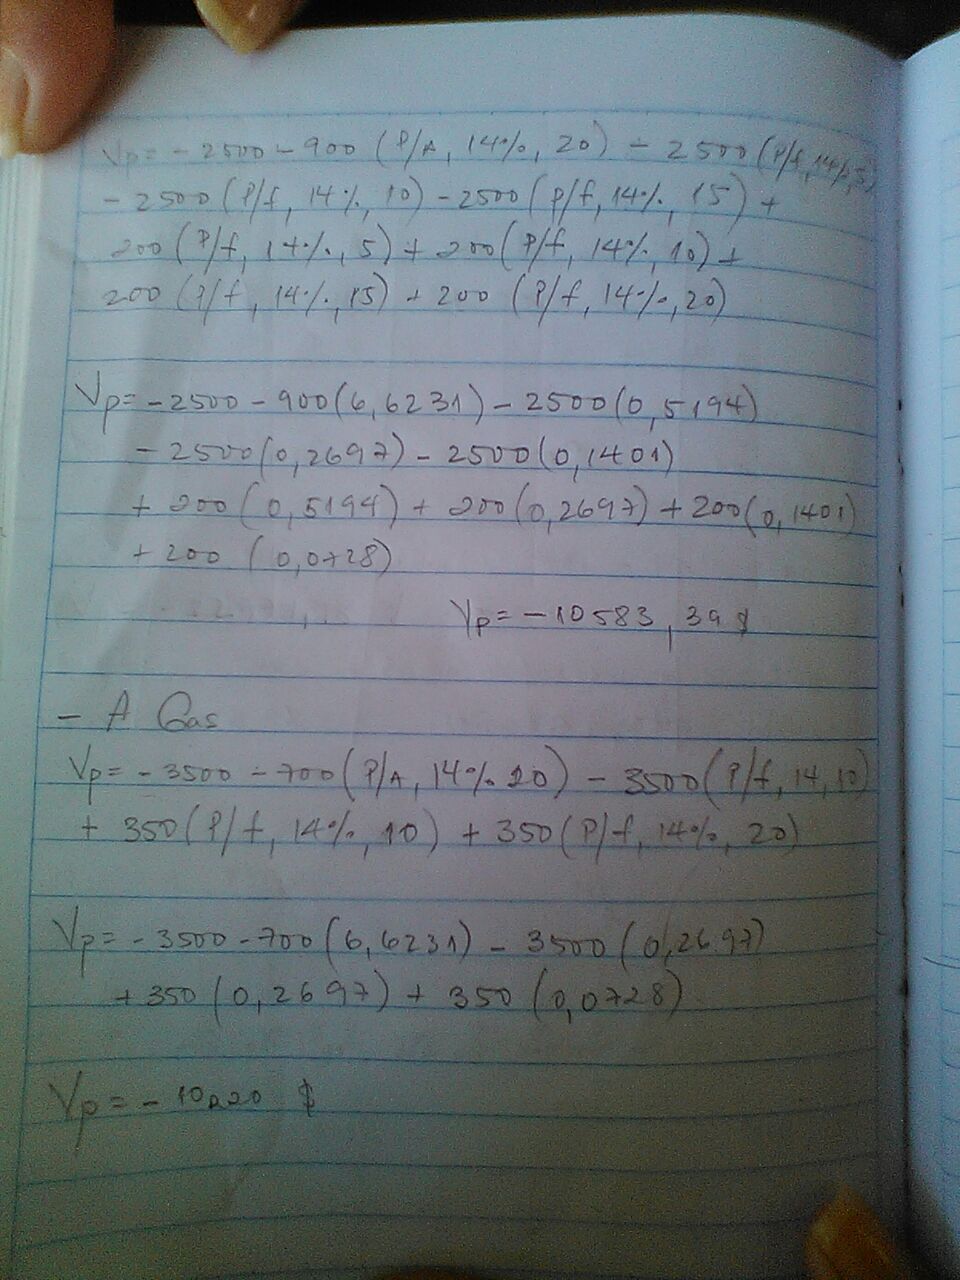 Vp = - 2500 - 900 (P/A, 14%, 20) - 2500 (P/f, 14%, 5)
- 2500 (P/f, 14%, 10) - 2500 (P/f, 14%, 15) +
200 (P/f, 14%, 5) + 200 (P/f, 14%, 10) +
200 (P/f, 14%, 15) + 200 (P/f, 14%, 20)
Vp = - 2500 - 900 (6,6231) - 2500 (0,5194)
- 2500 (0,2697) - 2500 (0,1401)
+ 200 (0,5194) + 200 (0,2697) + 200 (0,1401)
+ 200 (0,0728)
Vp = - 10583,39 $
- A Gas
Vp = - 3500 - 700 (P/A, 14% 20) - 3500 (P/f, 14, 10)
+ 350 (P/f, 14%, 10) + 350 (P/f, 14%, 20)
Vp = - 3500 - 700 (6,6231) - 3500 (0,2697)
+ 350 (0,2697) + 350 (0,0728)
Vp = - $